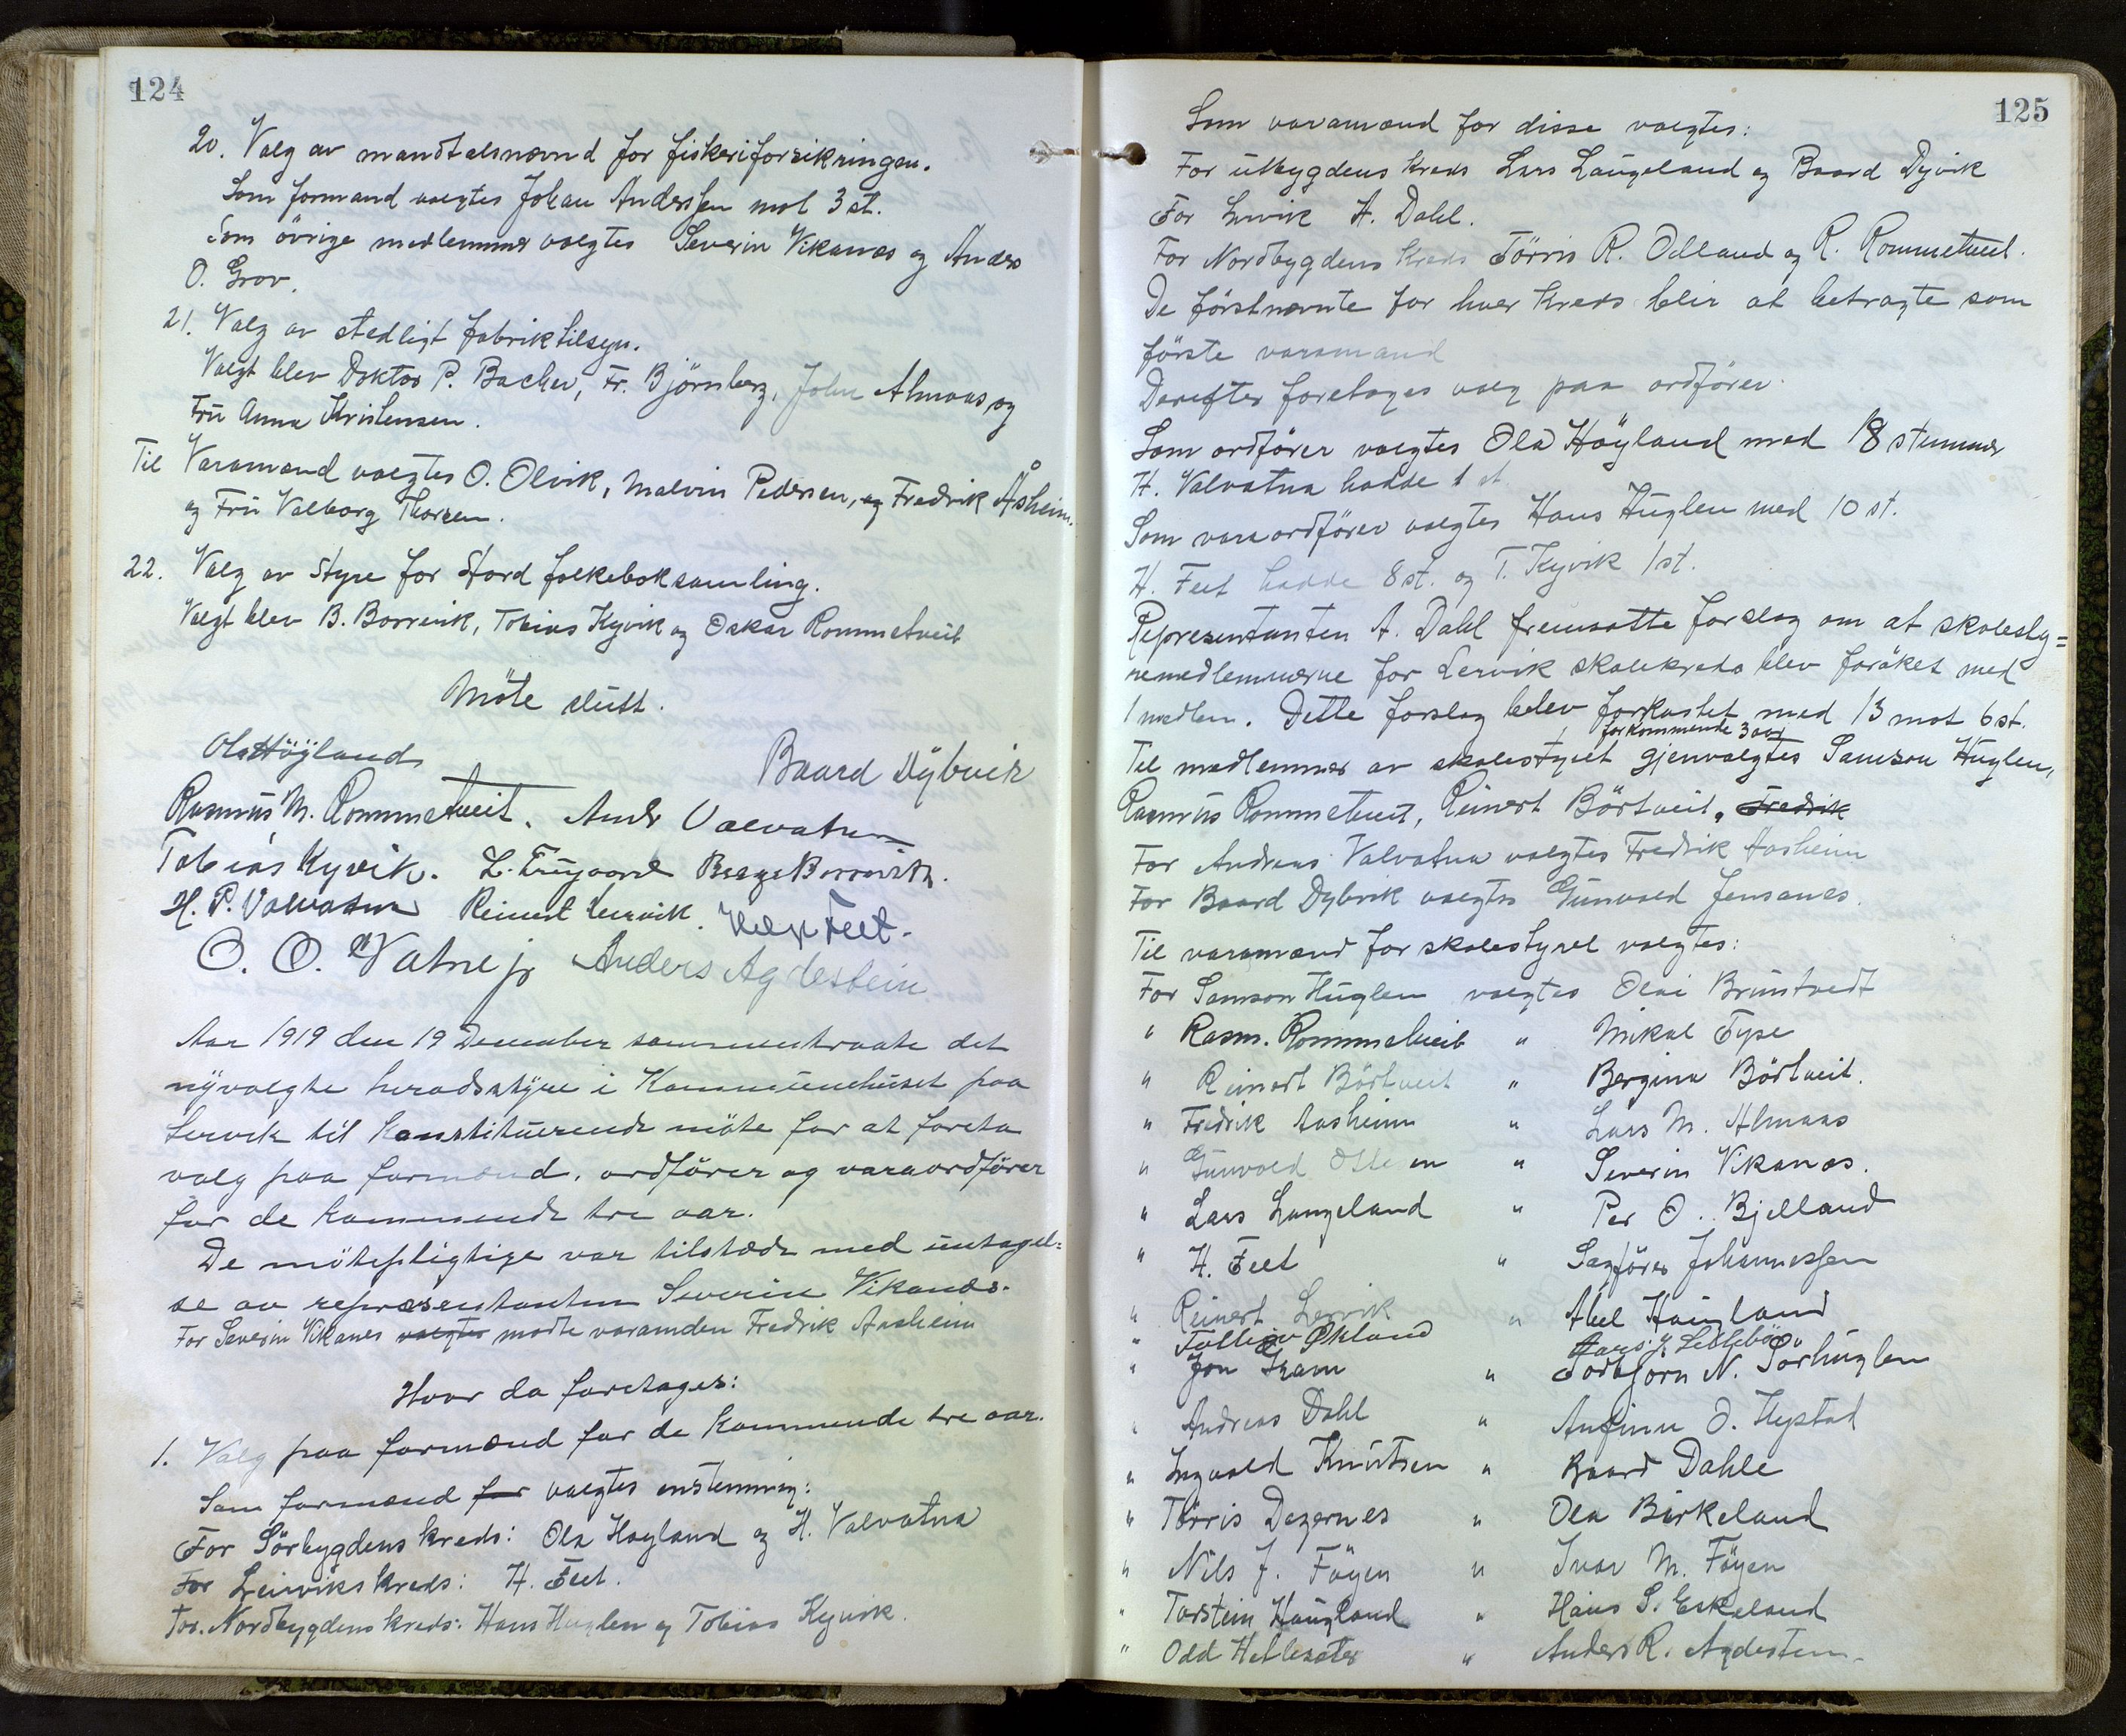 124
20. Valg av mandtalsnævnd for fiskeriforsikringen.
Som formand valgtes Johan Anderssen mot 3 st.
Som övrige medlemmer valgtes Severin Vikanæs og Anders
O. Grov.
21. Valg av stedligt fabriktilsyn.
Valgt blev Doktor P. Bacher, Fr. Björnberg, John Almaas og
Fru Anna Kristensen.
Til Varamænd valgtes O. Olvik, Malvin Pedersen, og Fredrik Åsheim.
og Fru Valborg Thorsen.
22. Valg av Styre for Stord folkeboksamling.
Valgt blev B. Borrevik, Tobias Kyvik og Oskar Rommetveit
Möte slutt.
Ola Höyland Baard Dybvik
Rasmus M. Rommetveit. Andr Valvatna
Tobias Kyvik. L. Berge Borrevik.
H. P. Valvatna Reinert Lervik. Helge Feet.
O. O. Vatne jr Anders Agdestein
Aar 1919 den 19 December sammentraate det
nyvalgte heradsstyre i Kommunehuset paa
Lervik til konstituerende möte for at foreta
valg paa formænd, ordförer og varaordförer
for de kommende tre aar.
De mötepligtige var tilstæde med untagel=
se av repræsentanten Severin Vikanæs.
For Severin Vikanes valgtes mødte varamden Fredrik Aasheim
Hvor da foretages:
1. Valg paa formænd for de kommende tre aar.
Som formænd for valgtes enstemmig:
For Sörbygdens kreds: Ola Høyland og H. Valvatna
For Leirviks kreds: H. Feet.
For Nordbygdens kreds: Hans Huglen og Tobias Kyvik.
125
Som varamænd for disse valgtes:
For utbygdens kreds Lars Langeland og Baard Dyvik
For Lervik A. Dahl.
For Nordbygdens kreds Törris R. Odland og R. Rommetveit.
De förstnævnte for hver kreds blir at betragte som
förste varamand
Derefter foretages valg paa ordförer.
Som ordförer valgtes Ola Höyland med 18 stemmer
H. Valvatna hadde 1 st
Som varaordförer valgtes Hans Huglen med 10 st.
H. Feet hadde 8 st. og T. Kyvik 1 st.
Representanten A. Dahl fremsatte forslag om at skolesty=
remedlemmerne for Lervik skolekreds blev foröket med
1 medlem. Dette forslag blev forkastet med 13 mot 6 st.
for kommende 3 aar
Til medlemmer av skolestyret gjenvalgtes Samson Huglen,
Rasmus Rommetveit, Reinert Börtveit, Fredrik
For Andreas Valvatna valgtes Fredrik Aasheim
For Baard Dybvik valgtes Gunvald Jensanes.
Til varamænd for skolestyret valgtes:
For Samson Huglen valgtes Olai Bruntvedt
" Rasm. Rommetveit " Mikal Tyse
" Reinert Börtveit " Bergina Börtveit.
" Fredrik Aasheim " Lars M. Almaas
" Gunvald " Severin Vikanæs.
" Lars Langeland " Per O. Bjelland
" H. Feet " Sagförer Johannessen
" Reinert Lervik " Abel Haugland
" Økland Lars J.
" Jon Tram " Torbjörn N. Sörhuglen
" Andreas Dahl " Anfinn O. Hystad
" Ingvald Knutsen " Baard Dahle
" Törris Dagernes " Ola Birkeland
" Nils J. Föyen " Ivar M. Föyen
" Torstein Haugland " Hans S. Eskeland
" Odd Hatlesæter " Anders R. Agdestein.